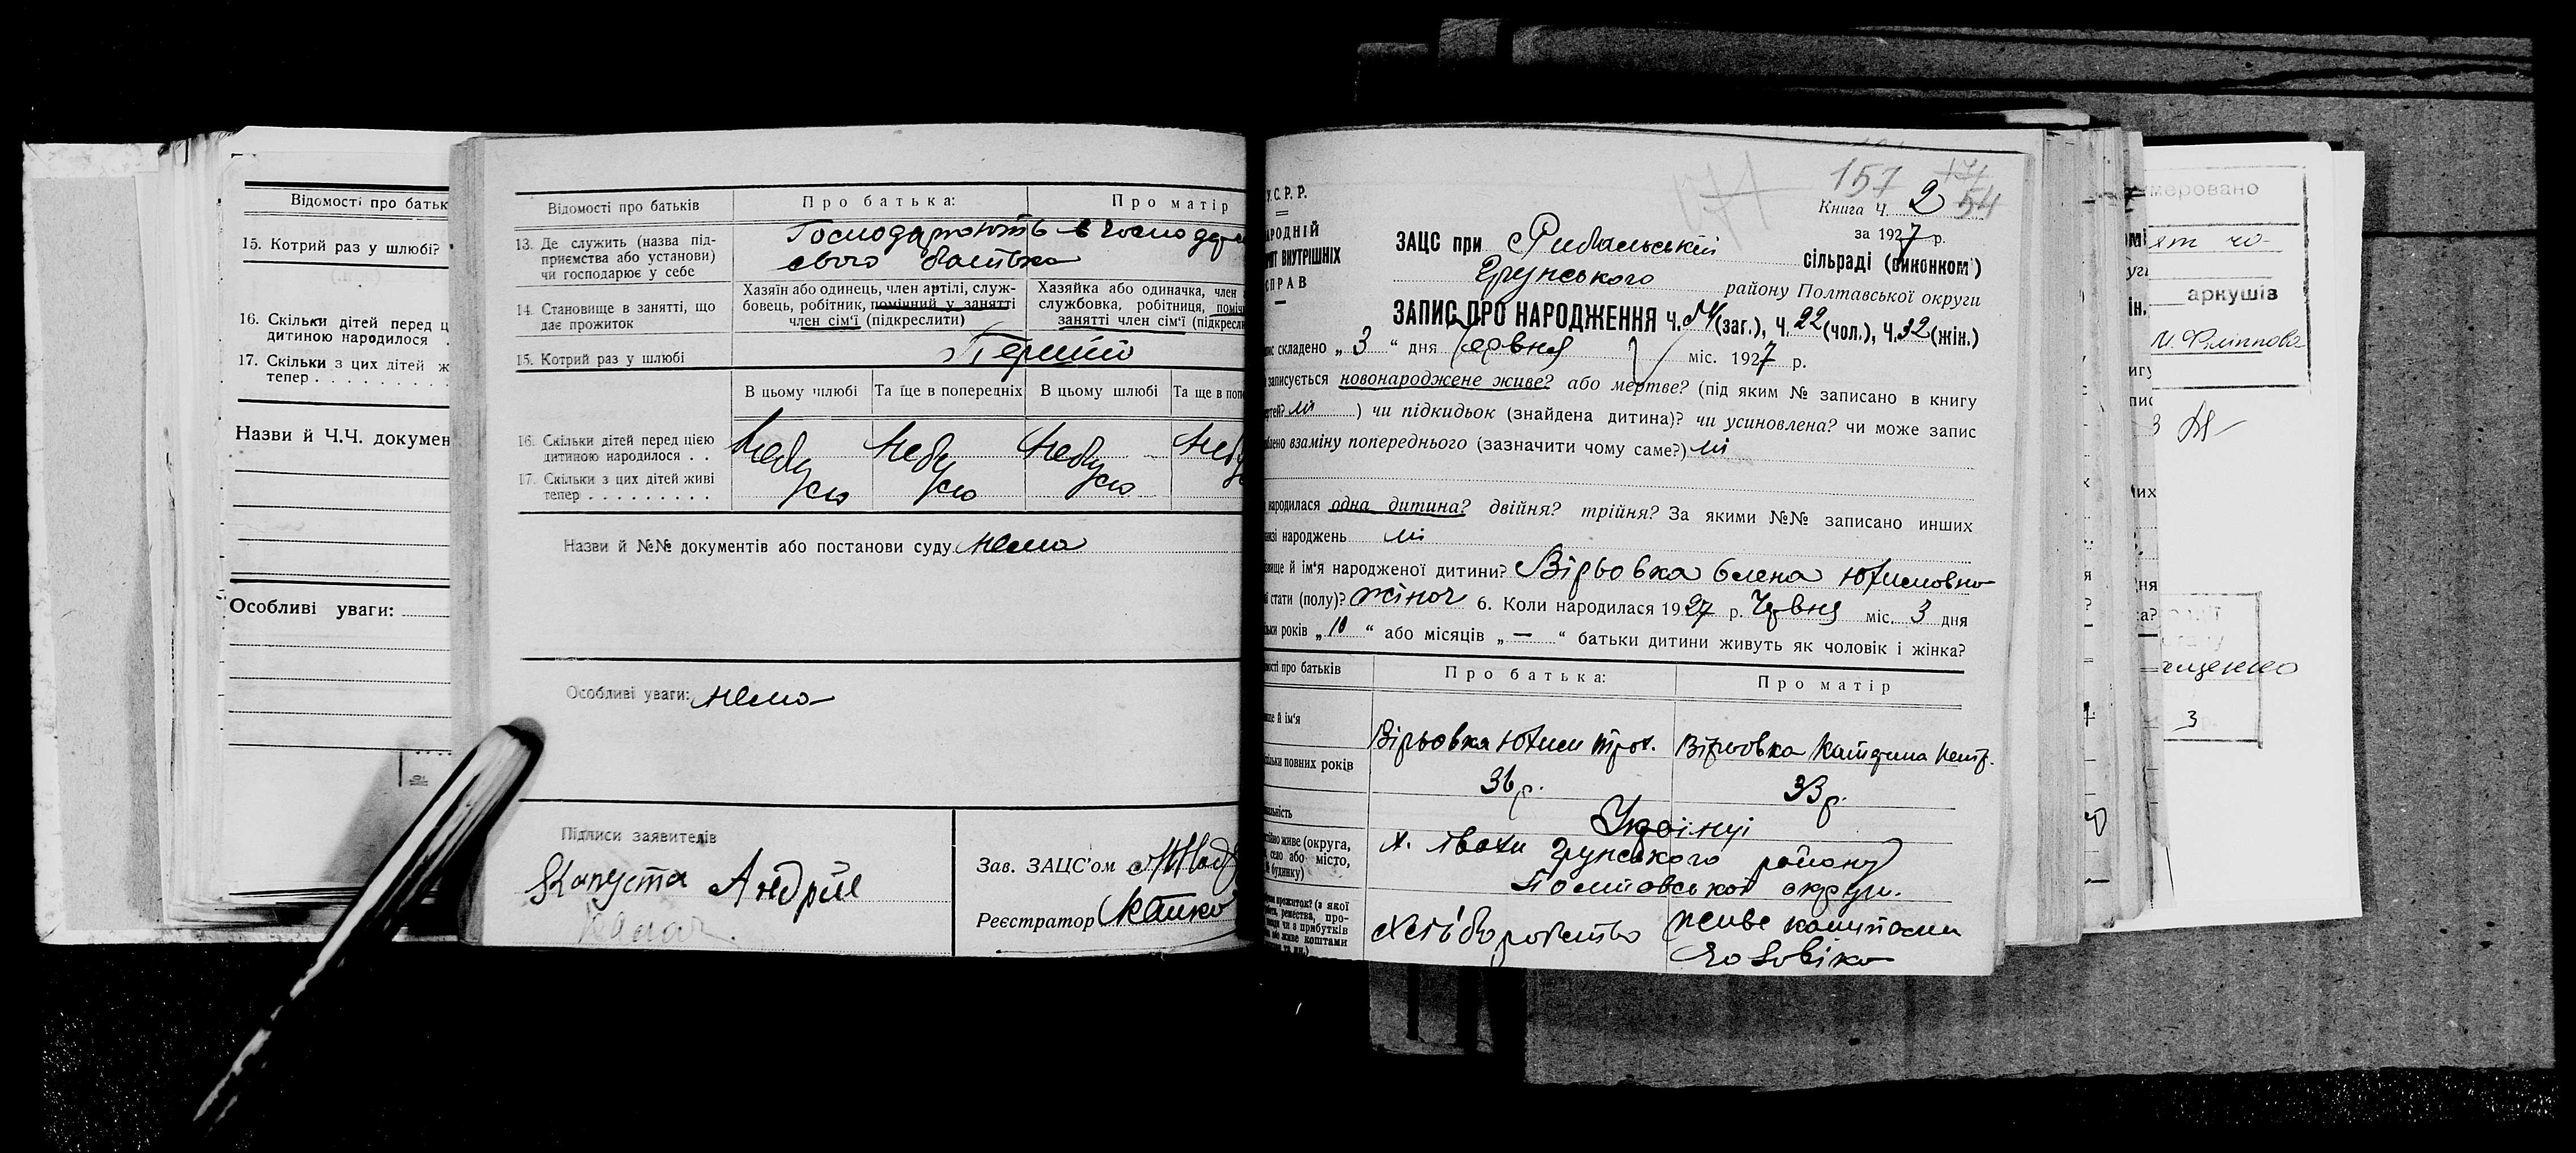 Відомості про батьк
15. Котрий раз у шлюбі?
16. Скільки дітей перед ц
дитиною народилося .
17. Скільки з цих дітей ж
тепер . . . . . . . . .
Назви й Ч.Ч. докумен
Особливі уваги:
Відомості про батьків
Про батька:
Про матір
13. Де служить (назва під-
приємства або установи)
чи господарює у себе
Господарюють в господар
свого батька
14. Становище в занятті, що
дає прожиток
Хазяїн або одинець, член артілі, служ-
бовець, робітник, помічний у занятті
член сім'ї (підкреслити)
Хазяйка або одиначка, член
службовка, робітниця, поміч
занятті член сім'ї (підкресл
15. Котрий раз у шлюбі
Перший
В цьому шлюбі
Та ще в попередніх
В цьому шлюбі
Та ще в поп
16. Скільки дітей перед цією
дитиною народилося . .
17. Скільки з цих дітей живі
тепер . . . . . . . . . .
Небу
ло
Небу
ло
Небу
ло
Небу
Назви й №№ документів або постанови суду нема
Особливі уваги: нема
Підписи заявителів
Капуста Андрій
Зав. ЗАЦС'ом
Реєстратор
У.С.Р.Р.
АРОДНІЙ
ВНУТРІШНІХ
СПРАВ
171
157
171
54
Книга Ч. 2
за 1927 р.
ЗАЦС при Рибальській сільраді (виконком')
Грунського району Полтавської округи
ЗАПИС ПРО НАРОДЖЕННЯ Ч. 54 (заг.), Ч. 22 (чол.), Ч. 32 (жін.)
ис складено „ 3 “ дня Червня міс. 1927 р.
записується новонароджене живе? або мертве? (під яким № записано в книгу
ертей? ні ) чи підкидьок (знайдена дитина)? чи усиновлена? чи може запис
блено взаміну попереднього (зазначити чому саме?) ні
народилася одна дитина? двійня? трійня? За якими №№ записано инших
народжень ні
вище й ім'я народженої дитини? Вірьовка Олена Юхимовна
стати (полу)? жіноч 6. Коли народилася 1927 р. Червня міс. 3 дня
льки років „ 10 “ або місяців „ — “ батьки дитини живуть як чоловік і жінка?
омості про батьків
Про батька:
Про матір
ще й ім'я
Вірьовка Юхим Трох.
Вірьовка Катерина Петр.
льки повних років
36 р.
33 р.
нальність
Українці
тійно живе (округа,
село або місто,
будинку)
х. Івахи Грунського району
Полтавської округи.
прожиток? (з якої
ремества, про-
чи з прибутків
живе коштами
Хліборобство
живе коштами
чоловіка
меровано
аркушів
М. Філіппова
3